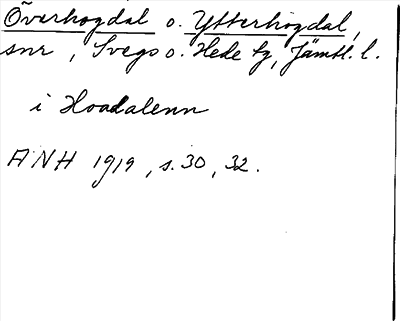 Överhogdal o. Ytterhogdal,
snr, Svegs o. Hede tg, Jämtl. l.
i Hoadalenn
ANH 1919, s. 30, 32.